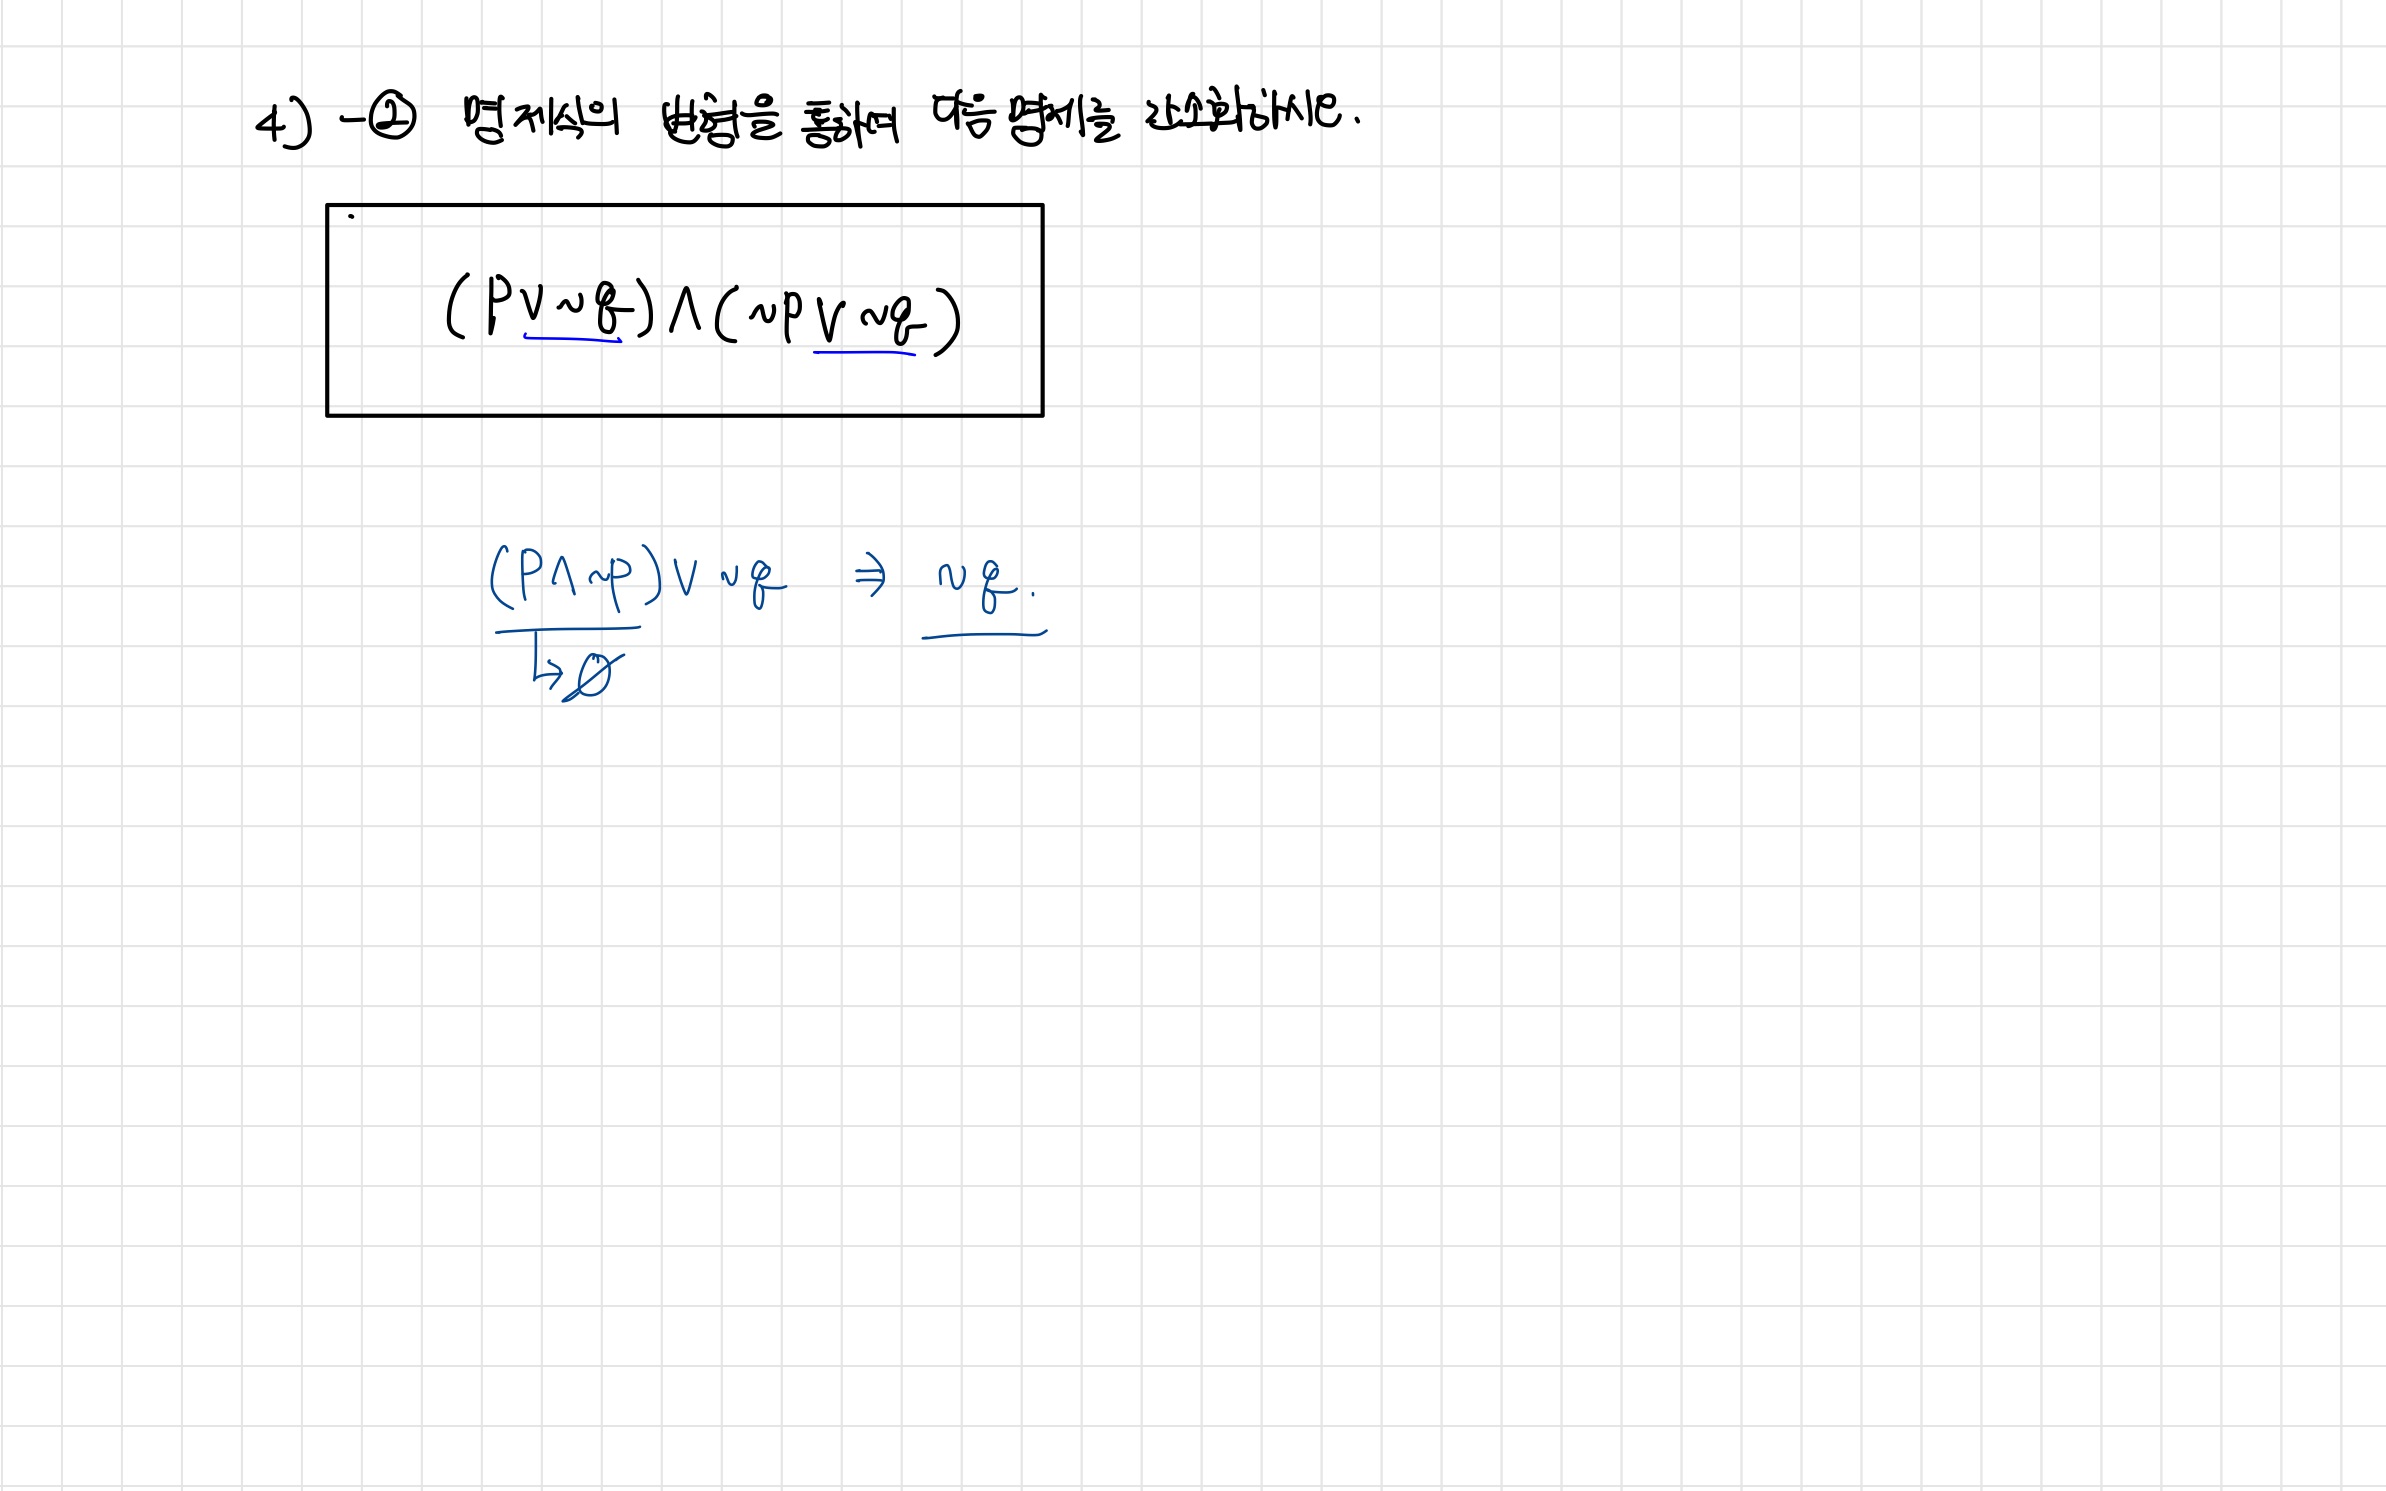 4) -② 명제식의 변형을 통하여 다음 명제를 간략화하라.
(P∨~q)∧(~p∨~q)
(P∧~p)∨~q ⇒ ~q.
↳∅